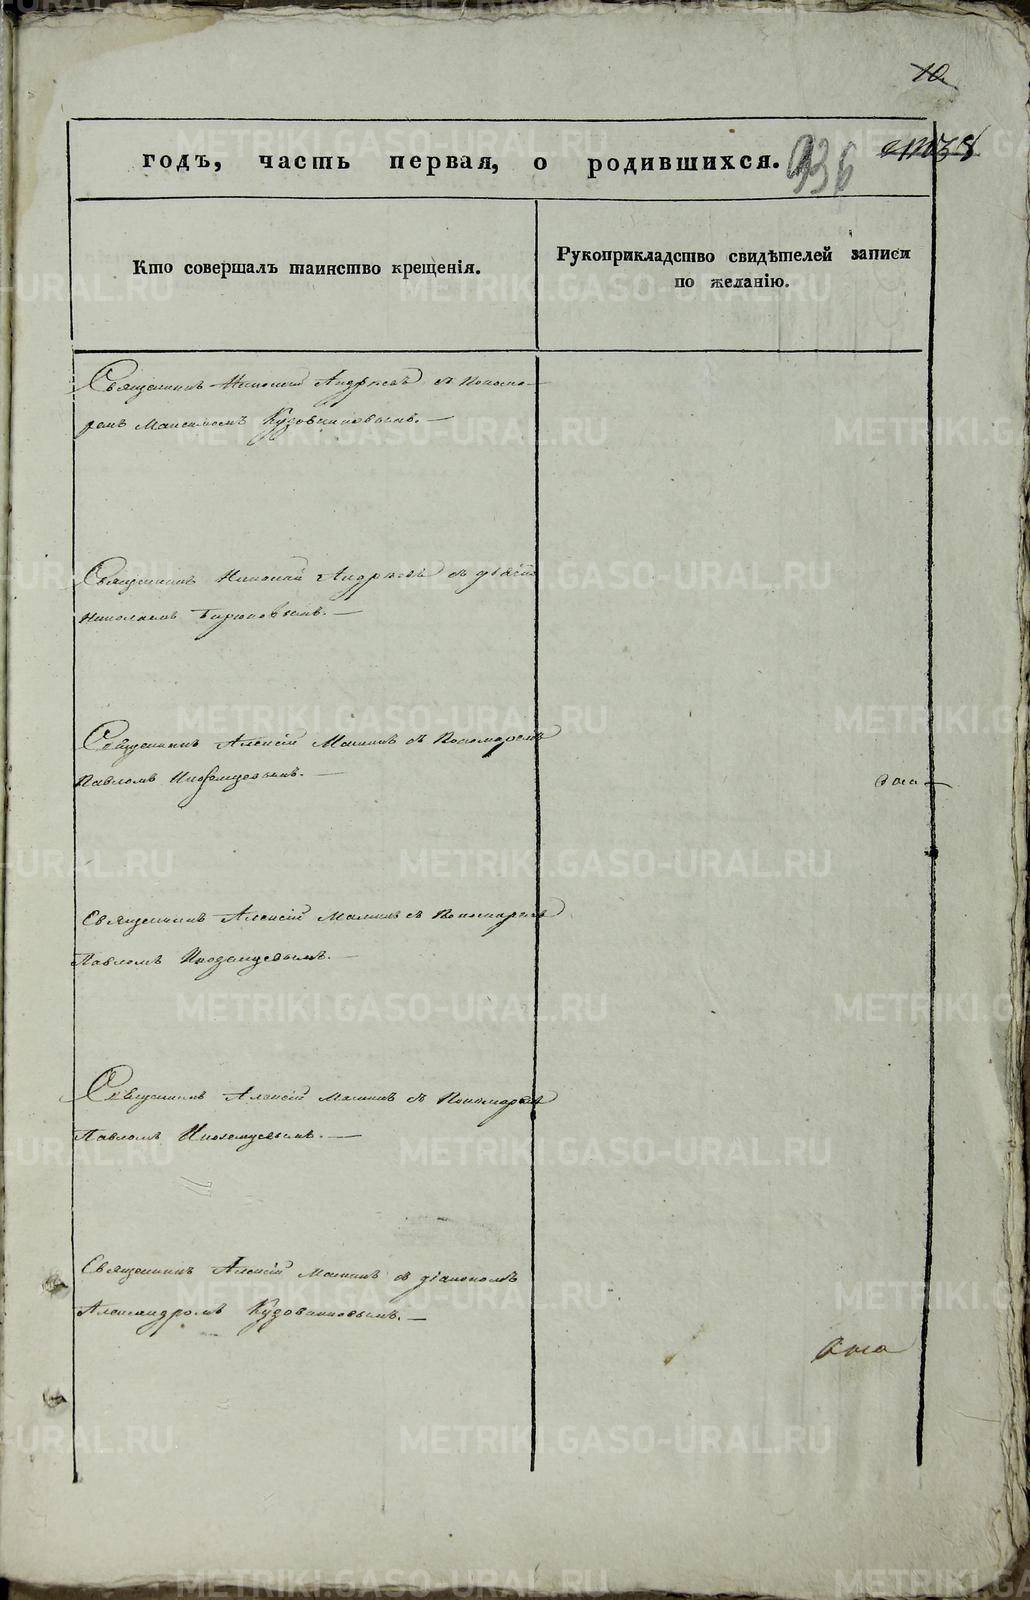 10.
годъ, часть первая, о родившихся.
936
Кто совершалъ таинство крещенія.
Рукоприкладство свидѣтелей записи
по желанію.
Священникъ Николай Андреевъ съ Поном-
ремъ Максимомъ Кудовшиковымъ. —
Священникъ Николай Андреевъ съ
Николаемъ Бирюковымъ. —
Священникъ Алексій Маминъ съ Пономаремъ
Павломъ Иноземцовымъ. —
Священникъ Алексій Маминъ съ Пономаремъ
Павломъ Иноземцовымъ. —
Священникъ Алексій Маминъ съ Пономаремъ
Павломъ Иноземцовымъ. —
Священникъ Алексій Маминъ съ діакономъ
Александромъ
METRIKI.GASO-URAL.RU